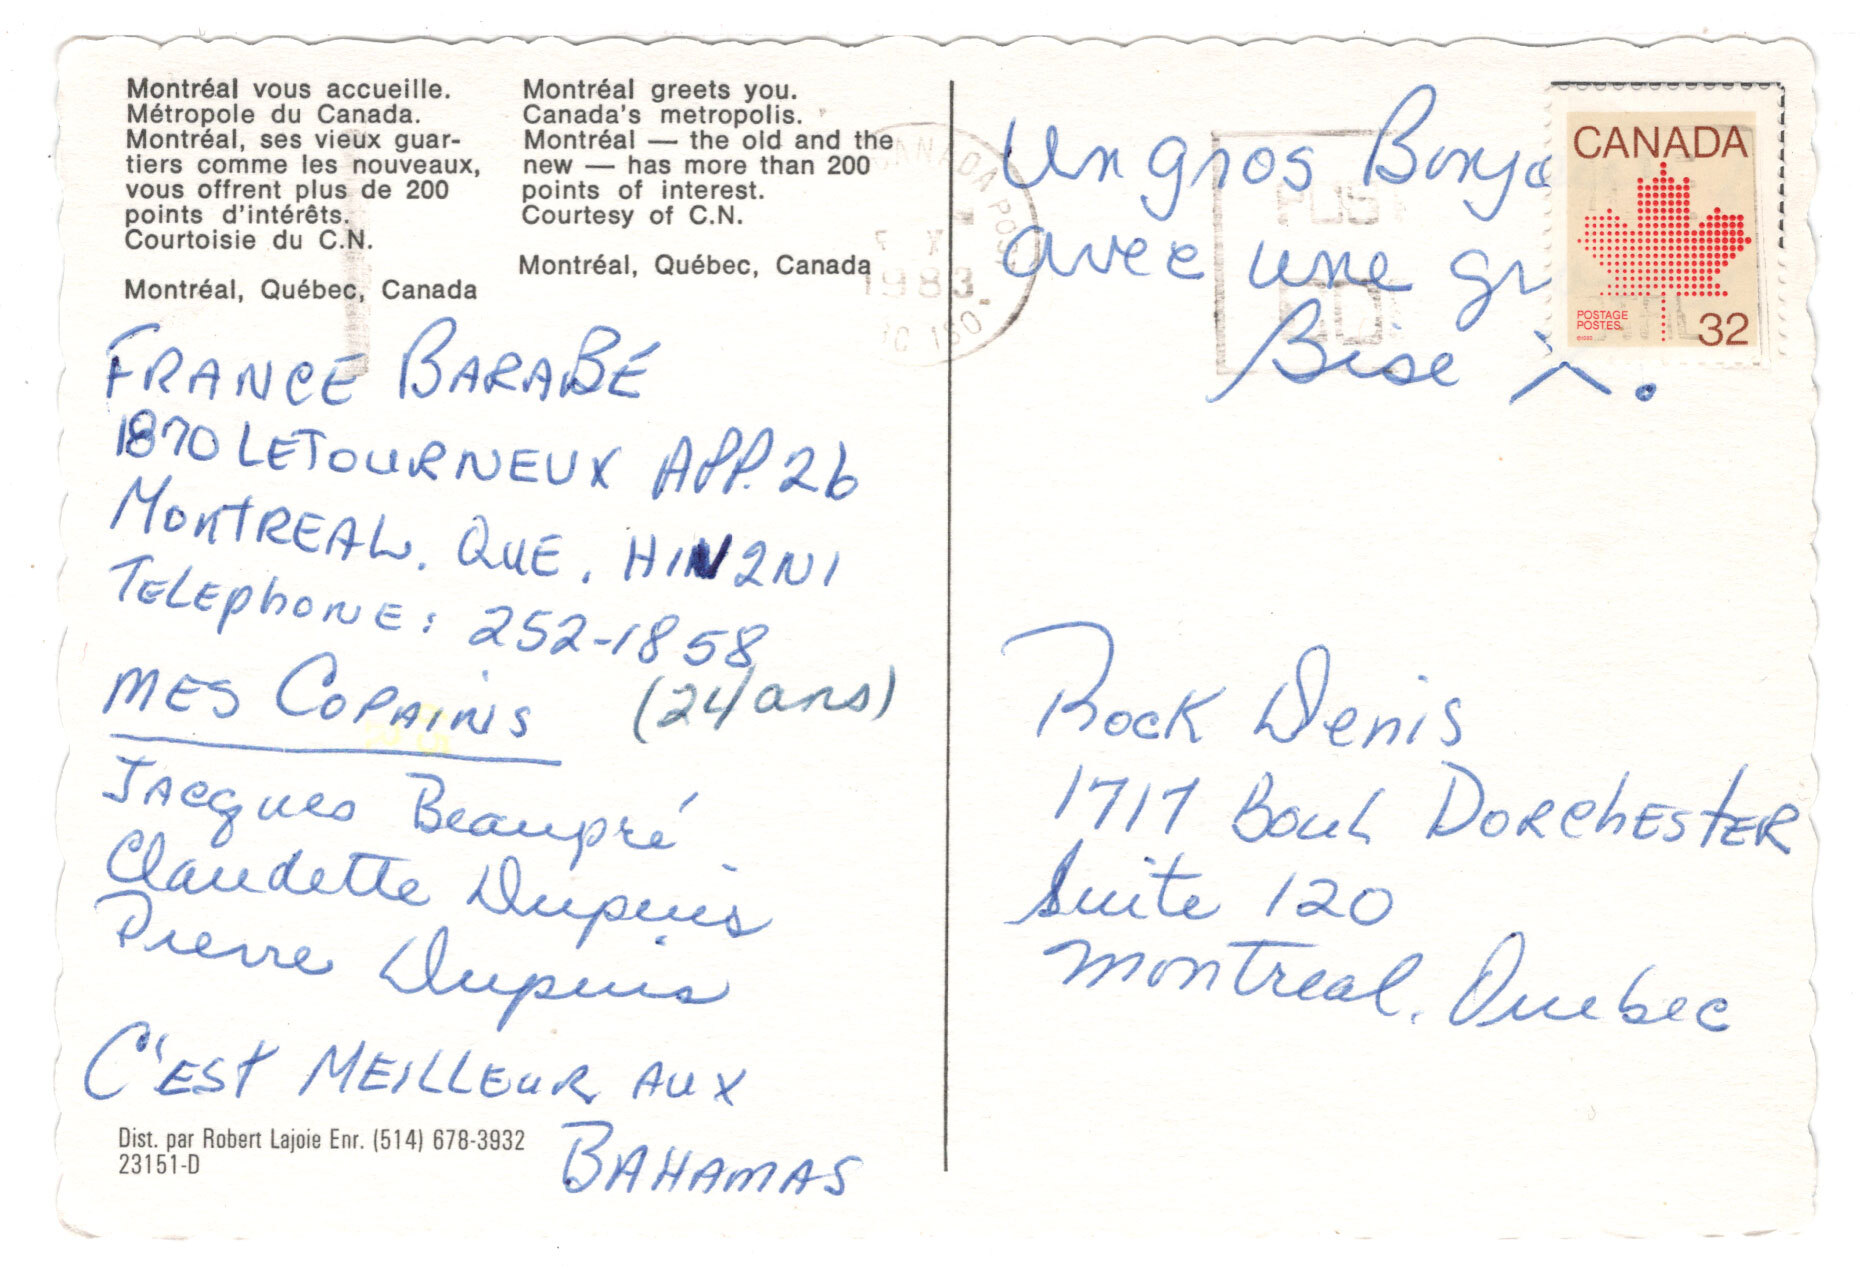 Montréal vous accueille.
Métropole du Canada.
Montréal, ses vieux guar-
tiers comme les nouveaux,
vous offrent plus de 200
points d'intérêts.
Courtoisie du C.N.
Montréal, Québec, Canada
Montréal greets you.
Canada's metropolis.
Montréal — the old and the
new — has more than 200
points of interest.
Courtesy of C.N.
Montréal, Québec, Canada
FRANCE BARABÉ
1870 LETOURNEUX APP. 26
MONTREAL. QUE. H1N 2N1
TELEPHONE: 252-1858
MES COPAINS (24 ans)
Jacques Beaupré
Claudette Dupuis
Pierre Dupuis
C'EST MEILLEUR AUX
BAHAMAS
Dist. par Robert Lajoie Enr. (514) 678-3932
23151-D
CANADA POST
1983
Un gros Bonjo
avec une gr
Bise
CANADA
POSTAGE
POSTES
32
Rock Denis
1717 Boul DORCHESTER
Suite 120
Montreal. Quebec